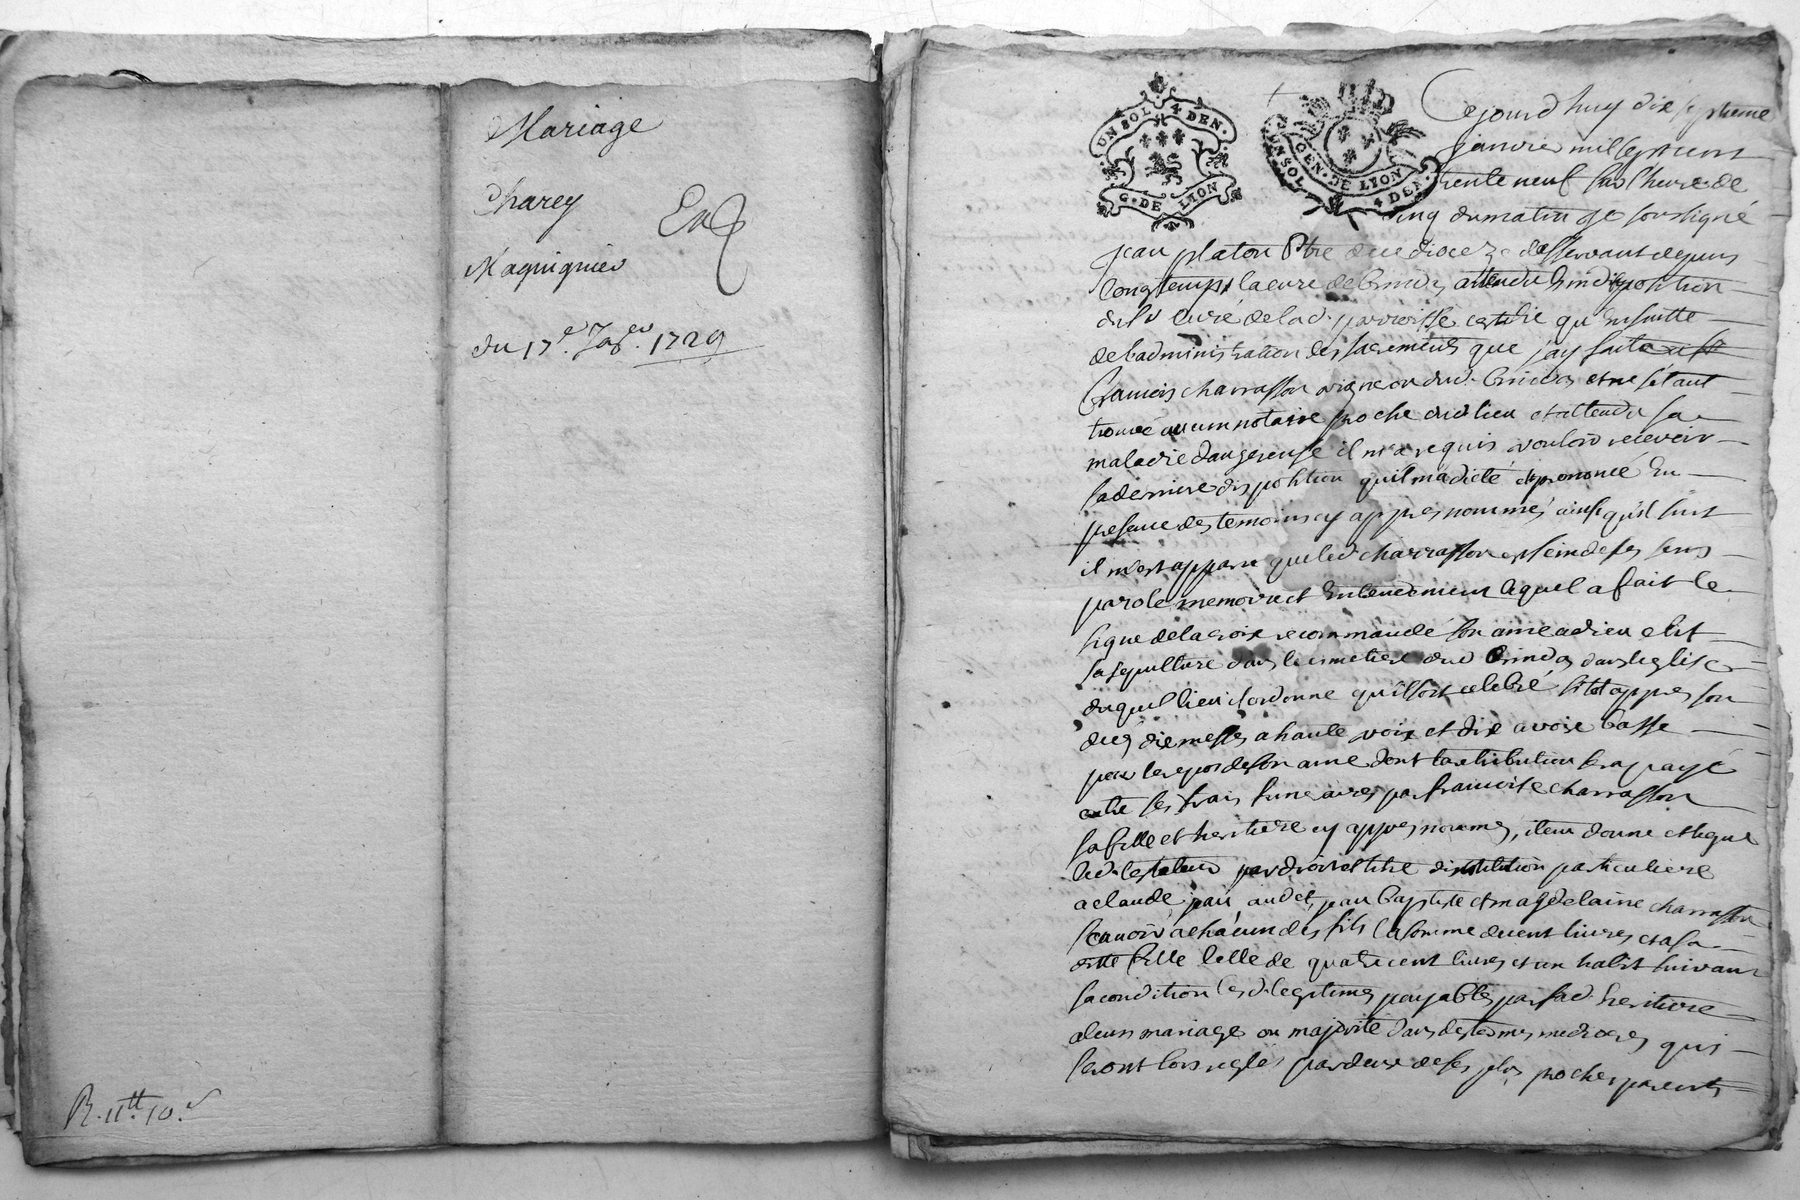 Mariage
Charey
Magnignier
du 17e. 1729
R. 11tt 10.s
UN SOL 4 DEN.
G. DE LION
UN SOL 4 DEN.
GEN. DE LION
Cejourdhuy dix septieme
janvier mil sept cent
trente neuf sur l'heure de
cinq du matin je soussigné
jean platon Ptre du dioceze desservant depuis
longtemps la cure de brindas attendu l'indisposition
du Sr curé de lad. parroisse certifie qu'ensuitte
de l'administration des sacrements que j'ay faite
francois charrasson vigneron dud. brindas et ne s'etant
trouvé aucun notaire proche dud lieu et attendu sa
maladie dangereuse il m'a requis vouloir recevoir
sa derniere disposition qu'il m'a dicté et prononcé en
presence des temoins cy appres nommés ainsi qu'il suit
il m'est apparu que led charrasson est sein de ses sens
parole memoire et entendement lequel a fait le
signe de la croix recommandé son ame a dieu elit
sa sepulture dans le cimetiere dud brindas dans l'eglise
duquel lieu il ordonne qu'il soit celebré sitot appres son
deces dix messes a haute voix et dix a voix basse
pour le repos de son ame dont la retribution sera payé
outre ses frais funeraires par francoise charrasson
sa fille et heritiere cy appres nommée, item donne et legue
led. testateur par droit et titre d'institution particuliere
a claude, jean baptiste et magdelaine charrasson
scavoir a chacun des fils la somme de cent livres et a sa
ditte fille celle de quatre cent livres et un habit suivant
sa condition les d. legitimes payables par sad. heritiere
a leurs mariage ou majorité dans des termes mediocres qui
seront lors reglés par deux de ses plus proches parents